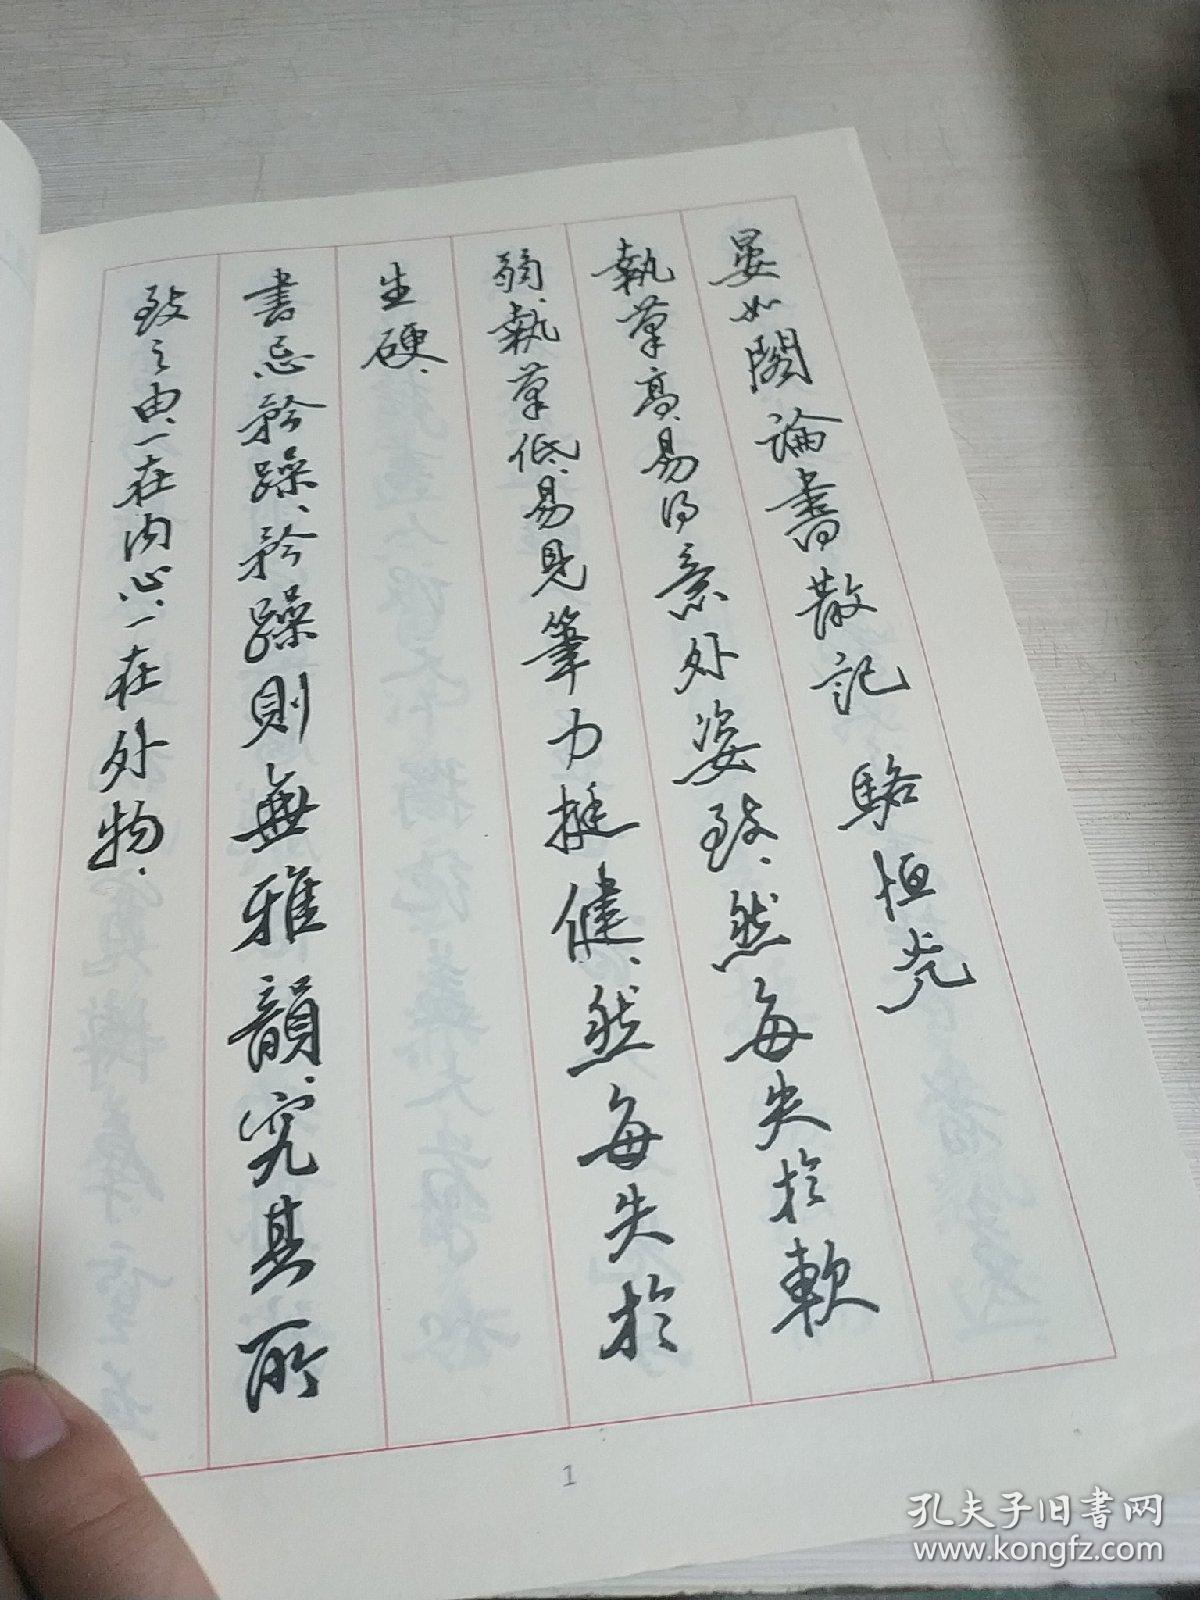 晏如閣論書散記 駱恒光
執筆高、易得意外姿致、然每失於軟
弱、執筆低、易見筆力挺健、然每失於
生硬、
書忌矜躁、矜躁則無雅韻、究其所
致之由、一在内心、一在外物、
1
孔夫子旧书网
www.kongfz.com